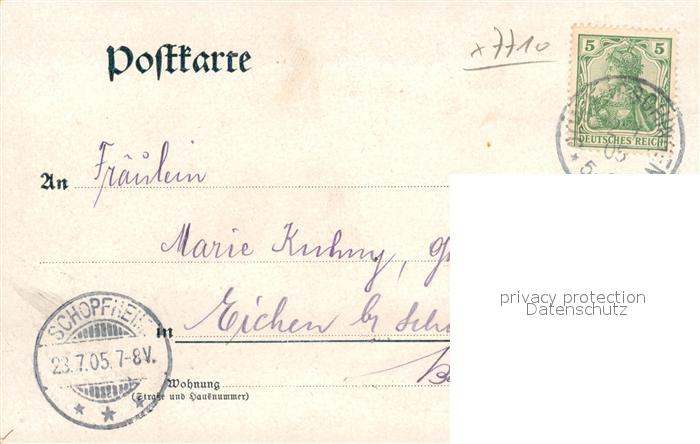 x 7710
Postkarte
5 5
DEUTSCHES REICH
05
An Fräulein
Marie Kuhny,
privacy protection
Datenschutz
SCHOPFHEIM
23.7.05.7-8V.
in Eichen b/
Wohnung
(Straße und Hausnummer)